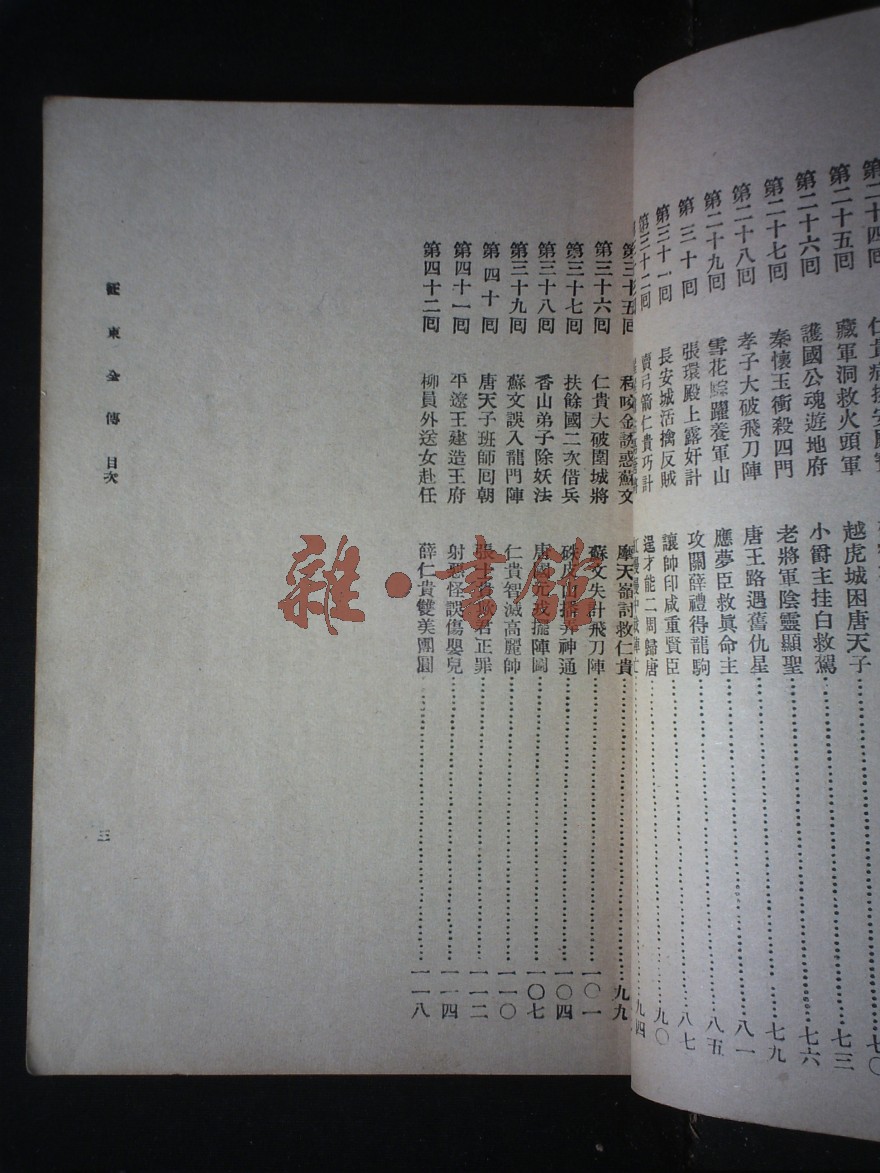 第二十四回
第二十五回 藏軍洞救火頭軍 越虎城困唐天子 七三
第二十六回 護國公魂遊地府 小爵主挂白救駕 七六
第二十七回 秦懷玉衝殺四門 老將軍陰靈顯聖 七九
第二十八回 孝子大破飛刀陣 唐王路遇舊仇星 八一
第二十九回 雪花鬃躍養軍山 應夢臣救眞命主 八五
第三十回 張環殿上露奸計 攻關薛禮得龍駒 八七
第三十一回 長安城活擒反賊 讓帥印咸重賢臣 九〇
第三十二回 賣弓箭仁貴巧計 逞才能二周歸唐 九四
第三十五回 程咬金誘惑蘇文 摩天嶺討救仁貴 九九
第三十六回 仁貴大破圍城將 蘇文失計飛刀陣 一〇一
第三十七回 扶餘國二次借兵 硃皮山播弄神通 一〇四
第三十八回 香山弟子除妖法 唐國元戎擺陣圖 一〇七
第三十九回 蘇文誤入龍門陣 仁貴智滅高麗帥 一一〇
第四十回 唐天子班師回朝 張士貴欺君正罪 一一二
第四十一回 平遼王建造王府 射惡怪誤傷嬰兒 一一四
第四十二回 柳員外送女赴任 薛仁貴雙美團圓 一一八
征東全傳 目次 三
雜·書館